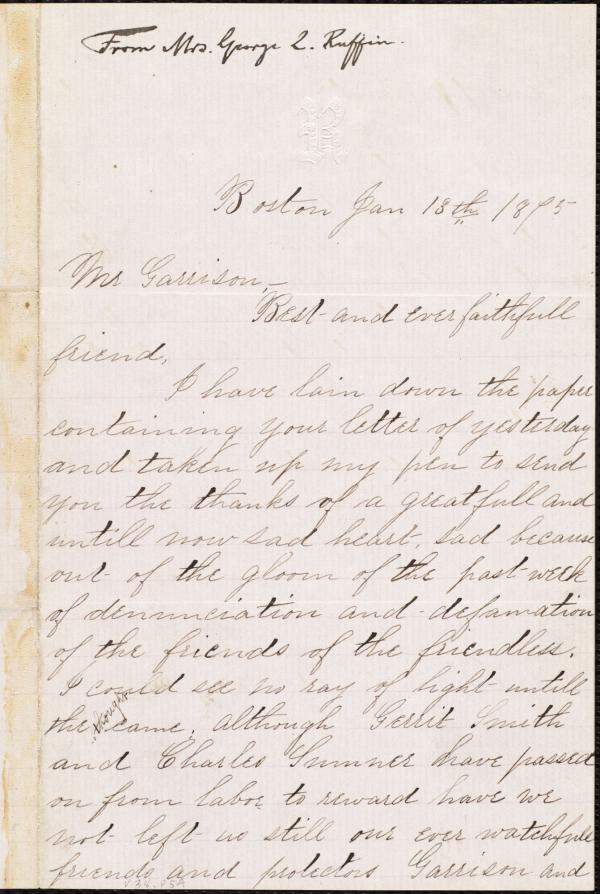 From Mrs. George L. Ruffin.
R
Boston Jan 13th 1875
Mr Garrison,—
Best and ever faithfull
friend,
I have lain down the paper
containing your letter of yesterday
and taken up my pen to send
you the thanks of a greatfull and
untill now sad heart, sad because
out of the gloom of the past week
of denunciation and defamation
of the friends of the friendless.
I could see no ray of light untill
the thought came, although Gerrit Smith
and Charles Sumner have passed
on from labor to reward have we
not left us still our ever watchfull
friends and protectors Garrison and